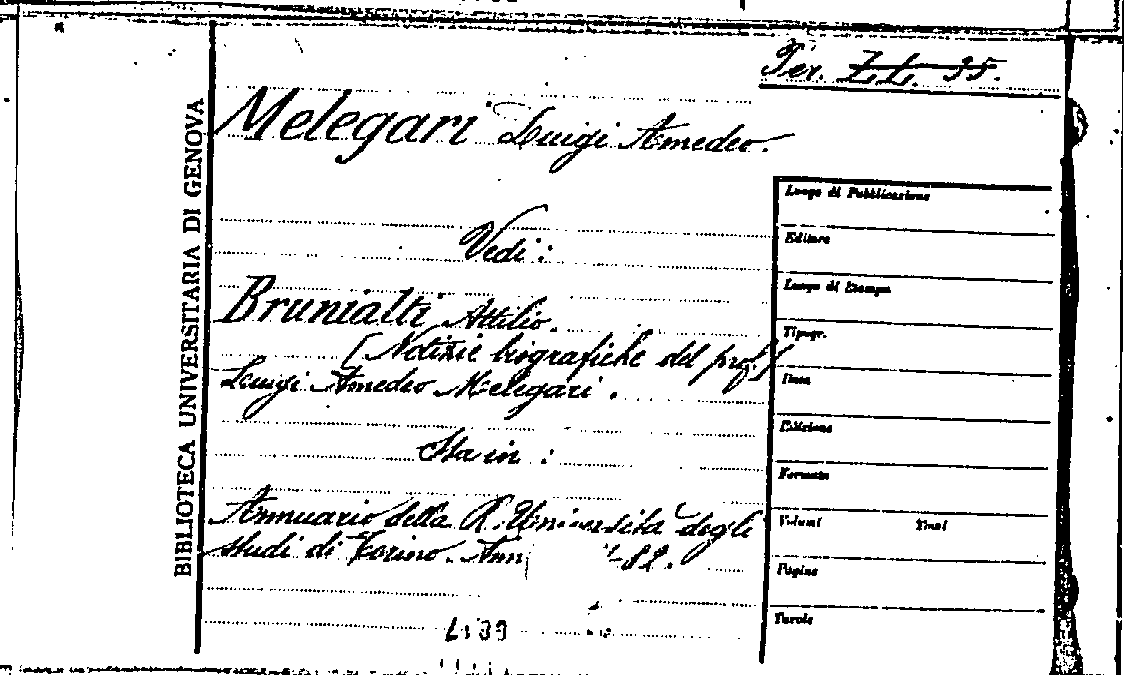 Per. Z.L. 35.
BIBLIOTECA UNIVERSITARIA DI GENOVA
Melegari Luigi Amedeo.
Vedi:
Brunialti Attilio.
[Notizie biografiche del prof.]
Luigi Amedeo Melegari.
Sta in:
Annuario della R. Università degli
studi di Torino. Ann -82.
Luogo di Pubblicazione
Editore
Luogo di Stampa
Tipogr.
Data
Edizione
Formato
Volumi Tomi
Pagine
Tavole